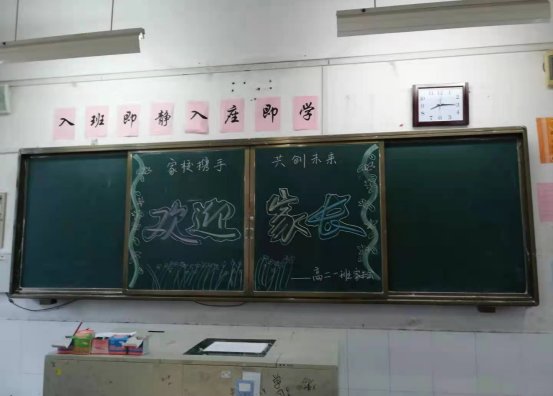 入班即静入座即学
家校携手 共创未来
欢迎家长
——高二一班家长会